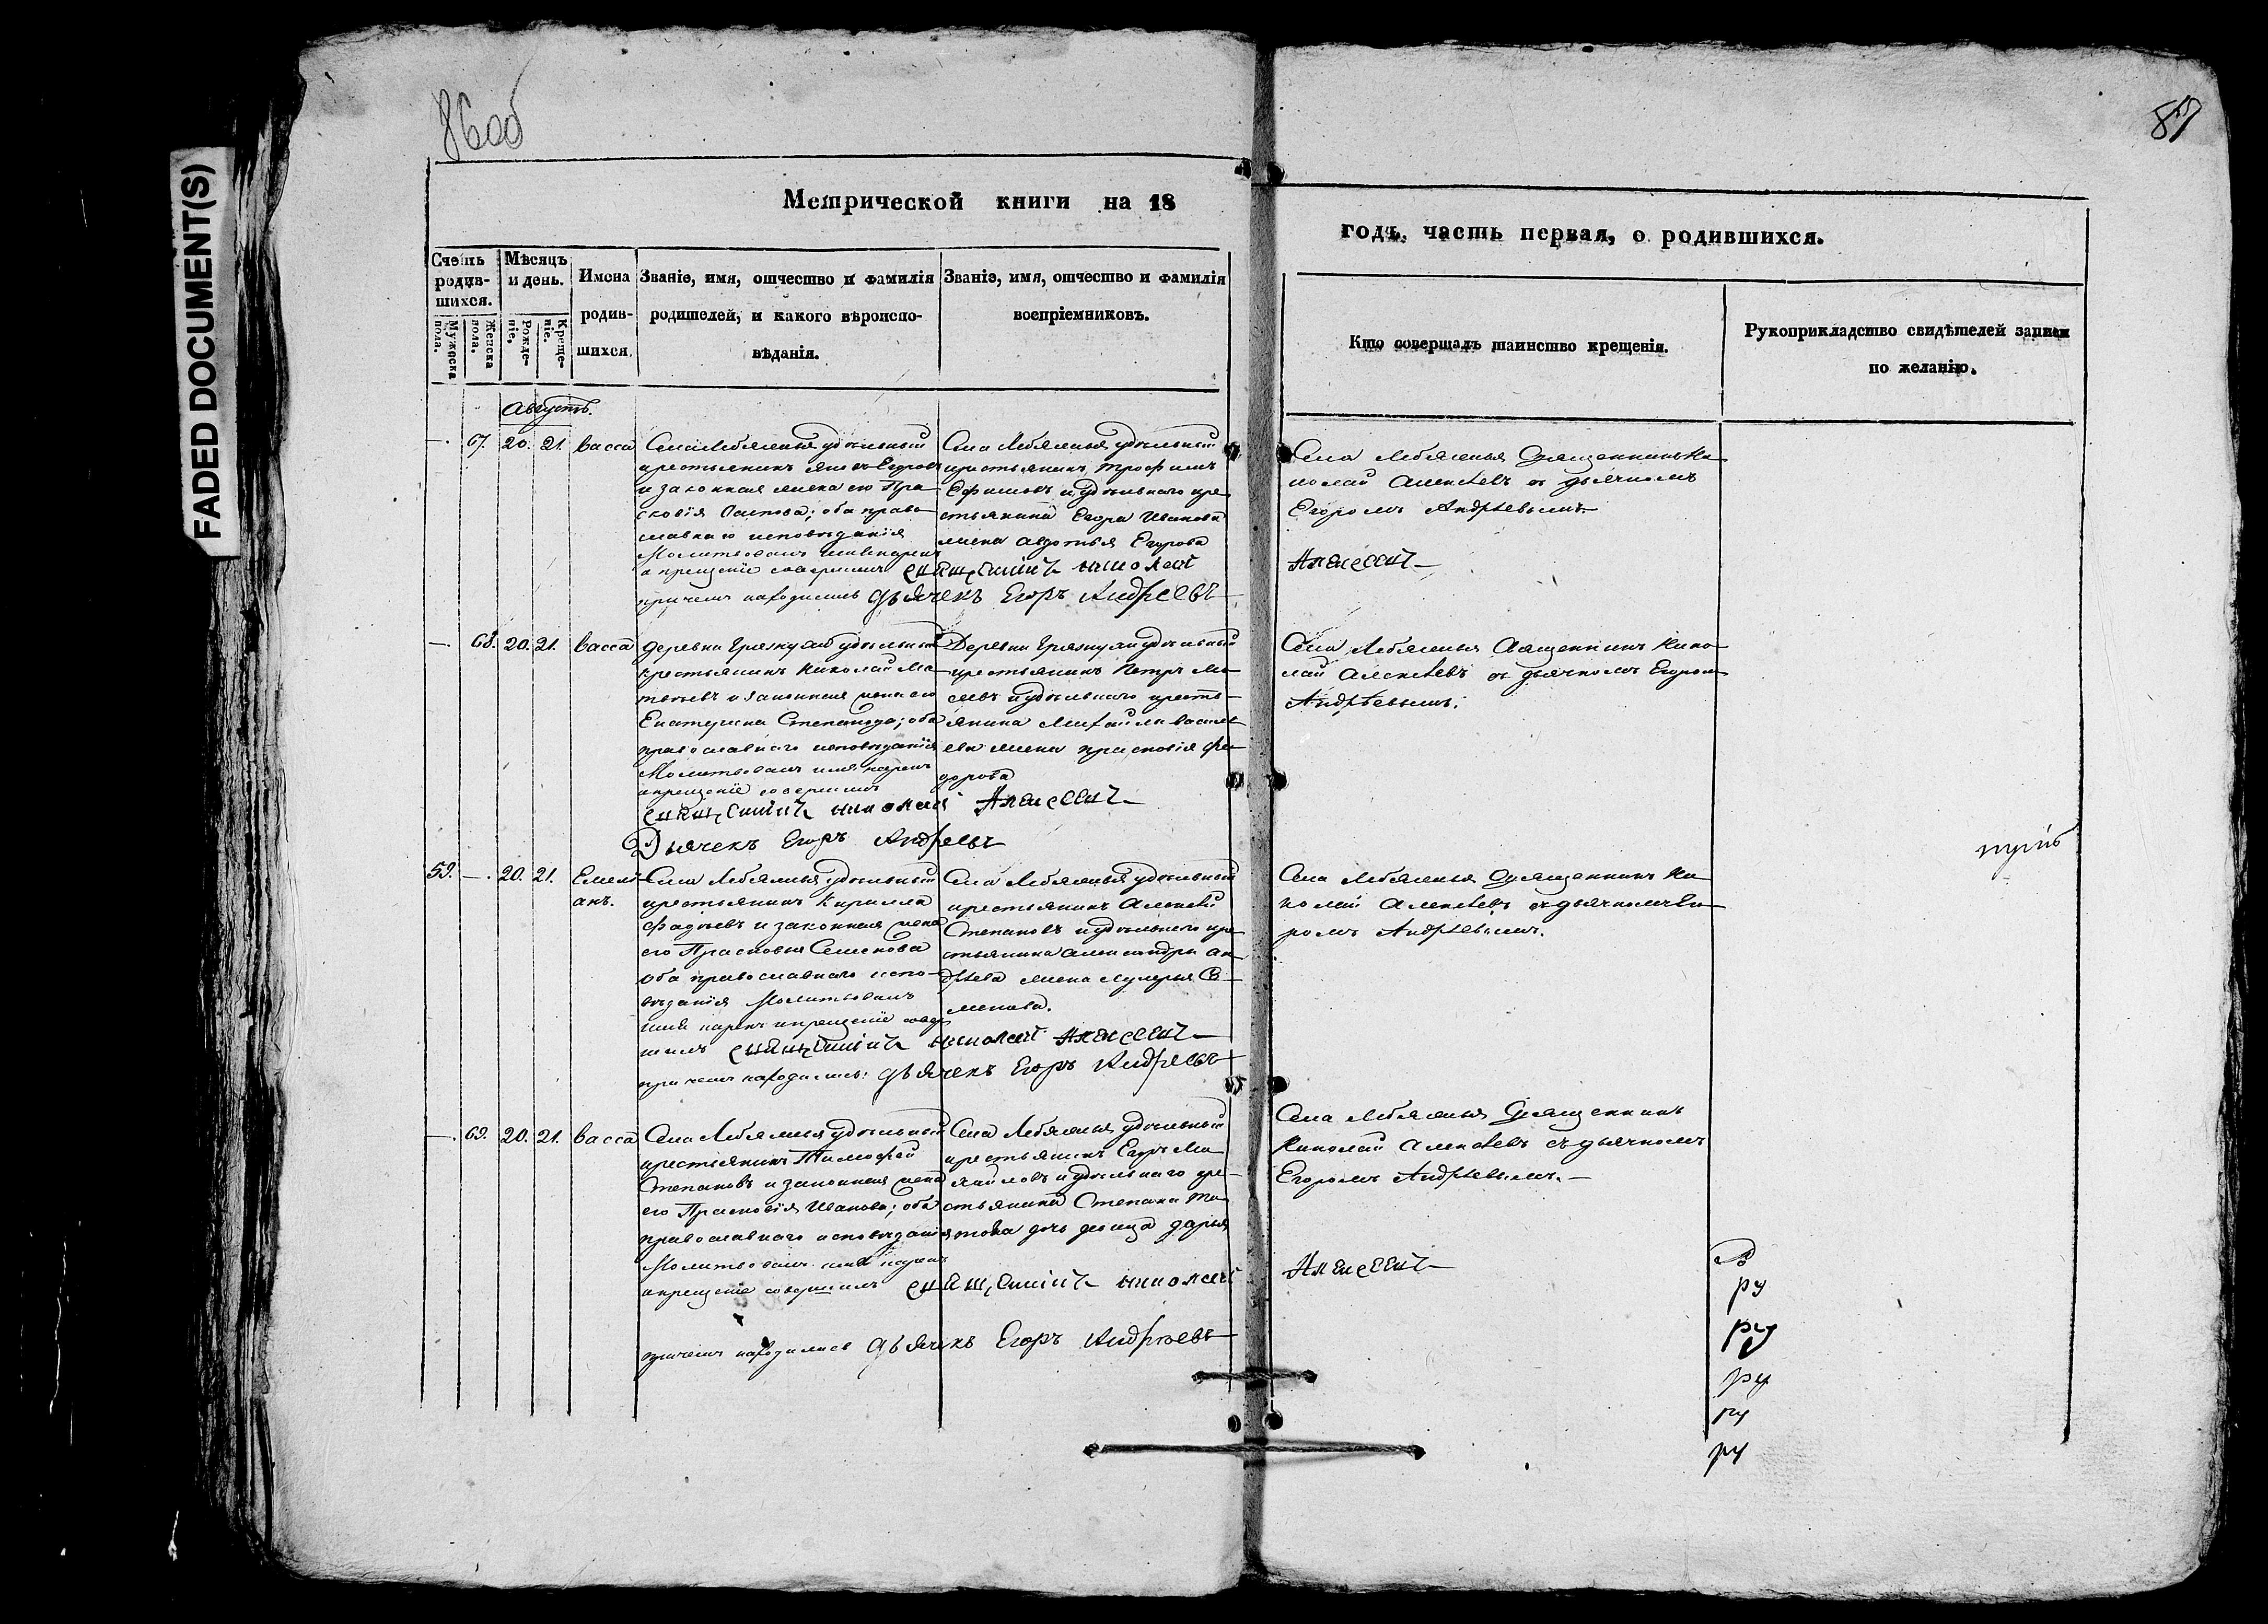 FADED DOCUMENT(S)
86об
87
Метрической книги на 18
годъ, часть первая, о родившихся.
Счетъ родив-
шихся.
Мужеска пола.
Женска пола.
Мѣсяцъ и день.
Рожде-
ніе.
Креще-
ніе.
Имена
родив-
шихся.
Званіе, имя, отчество и фамилія
родителей, и какого вѣроиспо-
вѣданія.
Званіе, имя, отчество и фамилія
воспріемниковъ.
Кто совершалъ таинство крещенія.
Рукоприкладство свидѣтелей записи
по желанію.
Августъ.
—. 67. 20. 21. Васса
Села Лебяжья удѣльный
крестьянинъ Яковъ Егоровъ
и законная жена его Пра-
сковія Осипова; оба право-
славнаго исповѣданія
Молитвовалъ имя нарекъ
и крещеніе совершилъ священникъ Николай
при чемъ находились дьячекъ Егоръ Андреевъ
Села Лебяжья удѣльный
крестьянинъ Трофимъ
Ефимовъ и удѣльнаго кре-
стьянина Егора Иванова
жена Авдотья Егорова
Села Лебяжья Священникъ Ни-
колай Алексѣевъ съ дьячкомъ
Егоромъ Андрѣевымъ.
Алексеевъ
— 68. 20. 21. Васса
Деревни удѣльный
крестьянинъ Николай Ма-
твѣевъ и законная жена его
Екатерина Степанова; оба
православнаго исповѣданія
Молитвовалъ имя нарекъ
и крещеніе совершилъ
священникъ Николай Алексеевъ
Дьячекъ Егоръ Андреевъ
Деревни удѣльный
крестьянинъ Петръ
и удѣльнаго кресть-
янина Михайла Василь-
ева жена Прасковія Фе-
дорова
Села Лебяжья Священникъ Нико-
лай Алексѣевъ съ дьячкомъ Егоромъ
Андрѣевымъ.
59. —. 20. 21. Емелі-
анъ.
Села Лебяжья удѣльный
крестьянинъ Кирилла
Фадѣевъ и законная жена
его Прасковья Семенова
оба православнаго испо-
вѣданія Молитвовалъ
имя нарекъ и крещеніе совер-
шилъ священникъ Николай Алексеевъ
при чемъ находились: дьячекъ Егоръ Андреевъ
Села Лебяжья удѣльный
крестьянинъ Алексѣй
Степановъ и удѣльнаго кре-
стьянина Александра Ан-
дрѣева жена Лукерья Се-
менова.
Села Лебяжья Священникъ Ни-
колай Алексѣевъ съ дьячкомъ Его-
ромъ Андрѣевымъ.
—. 69. 20. 21. Васса
Села Лебяжья удѣльный
крестьянинъ Тимофей
Степановъ и законная жена
его Прасковія Иванова; оба
православнаго исповѣданія
Молитвовалъ имя нарекъ
и крещеніе совершилъ священникъ Николай
при чемъ находились дьячекъ Егоръ Андрѣевъ
Села Лебяжья удѣльный
крестьянинъ Егоръ Ми-
хайловъ и удѣльнаго кре-
стьянина Степана
дочь девица Дарья
Села Лебяжья Священникъ
Николай Алексѣевъ съ дьячкомъ
Егоромъ Андрѣевымъ.
Алексеевъ
ру
ру
ру
ру
ру